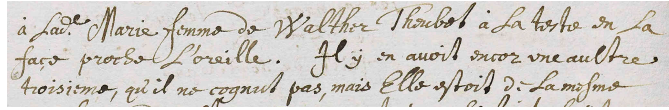 à Lad.e Marie femme de Walther Theubet à La teste en La
face proche L'oreille. Il y en avoit encor vne aultre
troisieme, qu'il ne cognut pas, mais Elle estoit de La mesme